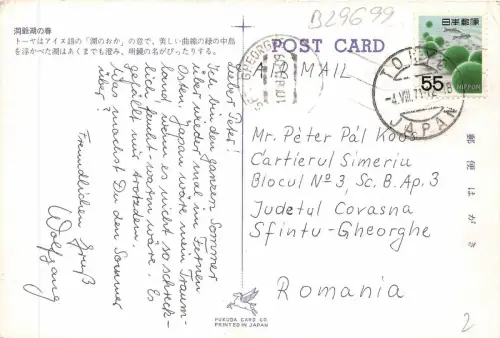 洞爺湖の春
トーヤはアイヌ語の「湖のおか」の意で,美しい曲線の緑の中島
を浮かべた湖はあくまでも澄み,明鏡の名がぴったりする。
B29699
POST CARD
AIR MAIL
日本郵便
55
NIPPON
TOMA
-4.VIII.71
JAPAN
GHEORGHE
Mr. Péter Pál Koós
Cartierul Simeriu
Blocul Nº 3, Sc. B. Ap. 3
Județul Covasna
Sfîntu-Gheorghe
Romania
郵便はがき
Lieber Peter!
Ich bin den ganzen Sommer
über wieder mal im Fernen
Osten. Japan wäre mein Traum-
land, wenn es nicht so schreck-
lich feucht-warm wäre. Es
gefällt mir trotzdem.
Was machst Du den Sommer
über?
Freundlichen Gruß
Wolfgang
FUKUDA CARD CO.
PRINTED IN JAPAN
2